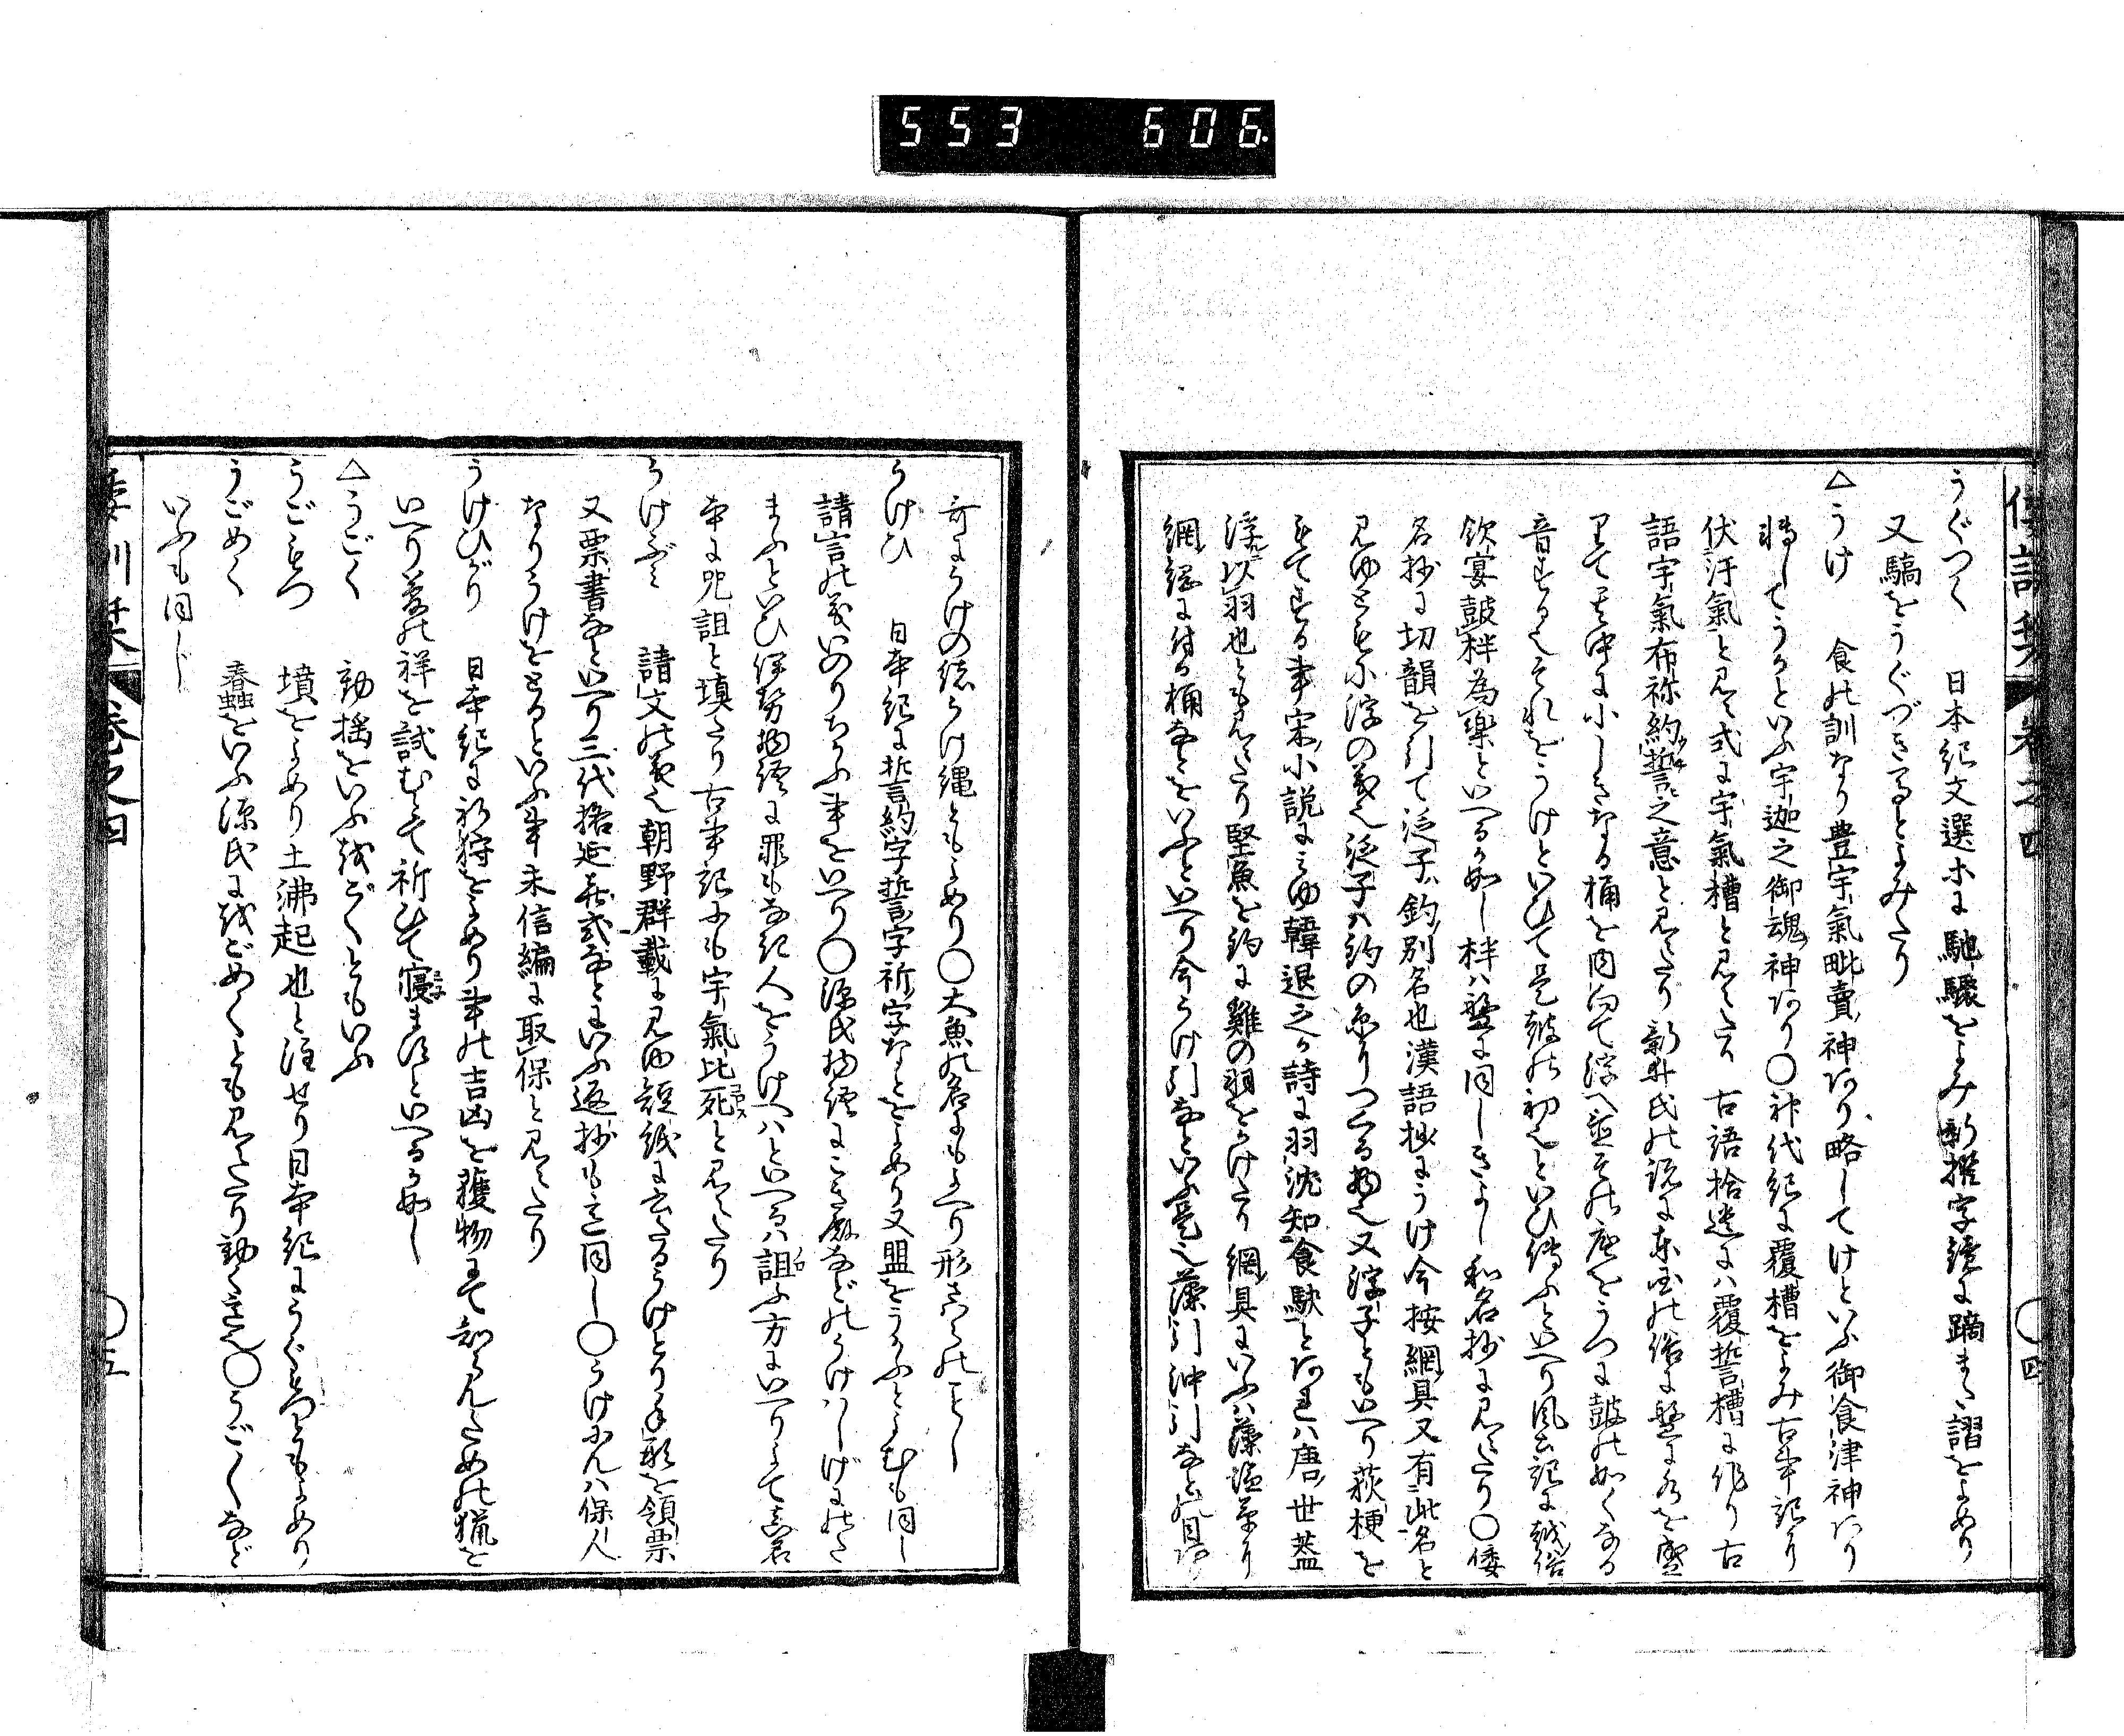 553 606
うぐつく 日本紀文選ホに馳驟をよみ新撰字鏡に躢また謵をよめり
又驕をうぐづきあるとよみたり
△うけ 食の訓なり豊宇氣毗賣神あり略してけといふ御食津神あり
轉してうかといふ宇迦之御魂神あり〇神代紀に覆槽をよみ古事記に
伏汙氣と見え式に宇氣槽と見えたり 古語拾遺には覆誓槽に作り古
語宇氣布祢約誓之意と見えたり新井氏の説に東国の俗に盤に水を盛
りて其中に小しきなる桶を内向て浮へ並その底をうつに鼓の如くなる
音するそれをうけといひて是鼓の初也といひ傳ふといへり風土記に越俗
飲宴鼓柈為樂といへるか如し柈ハ盤に同しきよし和名抄に見えたり〇倭
名抄に切韻を引て泛子釣別名也漢語抄にうけ今按網具又有此名と
見ゆともに浮の義也泛子ハ釣の糸につくる物也又浮子ともいへり荻梗を
もてする事宋小説にみゆ韓退之か詩に羽沈知食駃とあるハ唐世蓋
浮以羽也とも見えたり堅魚を釣に雞の羽をかけたり 網具にいふハ藻塩草に
網縄に付る桶なとをいふといへり今うけ引なといふ是也藻引沖引なとの目あり
哥にうけの緒うけ縄ともよめり〇大魚の名にもよへり形さへらのことし
うけひ 日本紀に誓約字誓字祈字なとをよめり又盟をうかふとよむも同し
請言の義いのりちかふ事をいへり〇源氏物語にこき殿などのうけハしげにのた
まふといひ伊勢物語に罪もなき人をうけへハといへるハ詛ふ方にいへりよて真名
本に咒詛と填たり古事記にも宇氣比死と見えたり
うけぶミ 請文の義也朝野群載に見ゆ短紙に書たるうけとり手形を領票
又票書なといへり三代格延喜式なとにいふ返抄も意同し〇うけにんハ保人
なりうけをとるといふ事未信編に取保と見えたり
うけひがり 日本紀に祈狩をよめり事の吉凶を獲物にて知らんための猟を
いへり夢の祥を試むとて祈ひて寢ませといへるか如し
△うごく 動揺をいふ越ごくともいふ
うごもつ 墳をよめり土沸起也と注せり日本紀にうぐもつともよめり
うごめく 蠢をいふ源氏に越ごめくとも見えたり動く意也〇うごくなど
いふも同し
倭訓栞 巻之四 〇四
倭訓栞 巻之四 〇五